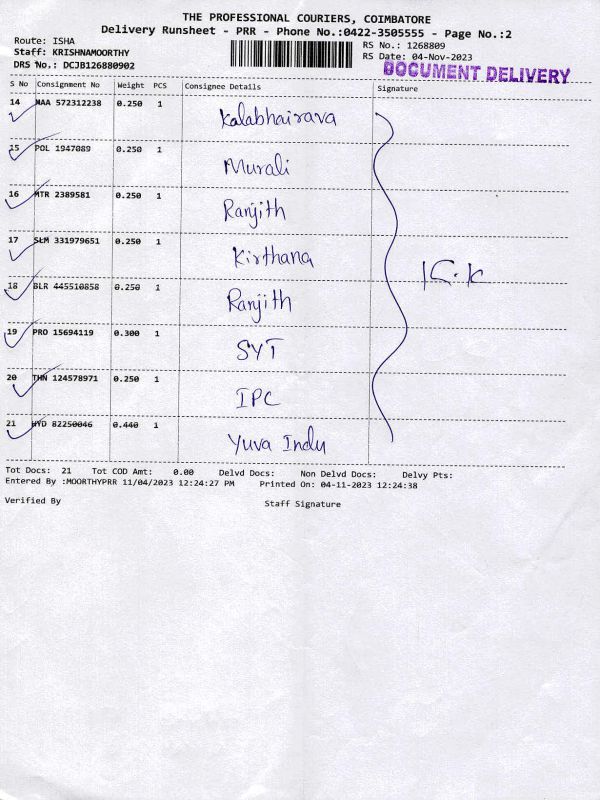 THE PROFESSIONAL COURIERS, COIMBATORE
Delivery Runsheet - PRR - Phone No.:0422-3505555 - Page No.:2
Route: ISHA
RS No.: 1268809
Staff: KRISHNAMOORTHY
RS Date: 04-Nov-2023
DRS No.: DCJB126880902
DOCUMENT DELIVERY
S No Consignment No Weight PCS Consignee Details Signature
14 MAA 572312238 0.250 1 Kalabhairava
15 POL 1947089 0.250 1 Murali
16 MTR 2389581 0.250 1 Ranjith
17 SLM 331979651 0.250 1 Kirthana
18 BLR 445510858 0.250 1 Ranjith
19 PRO 15694119 0.300 1 SYT
20 THN 124578971 0.250 1 IPC
21 HYD 82250046 0.440 1 Yuva Indu
Tot Docs: 21 Tot COD Amt: 0.00 Delvd Docs: Non Delvd Docs: Delvy Pts:
Entered By :MOORTHYPRR 11/04/2023 12:24:27 PM Printed On: 04-11-2023 12:24:38
Verified By Staff Signature